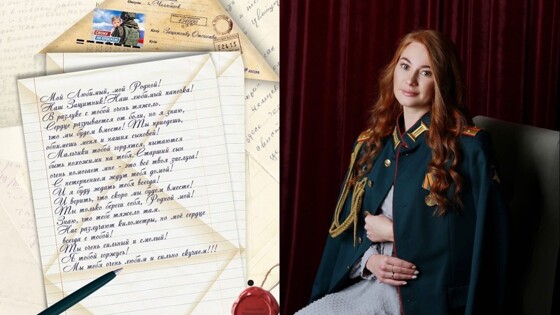 Защитнику Отечества
22415
Мой Любимый, мой Родной!
Наш Защитник! Наш любимый папочка!
В разлуке с тобой очень тяжело.
Сердце разрывается от боли, но я знаю,
что мы будем вместе! Ты приедешь,
обнимешь меня и наших сыновей!
Мальчики тобой гордятся, пытаются
быть похожими на тебя. Старший сын
очень помогает мне - это всё твоя заслуга!
С нетерпением ждут тебя домой!
И я буду ждать тебя всегда!
И верить, что скоро мы будем вместе!
Ты только береги себя, Родной мой!
Знаю, что тебе тяжело там.
Нас разлучают километры, но моё сердце
всегда с тобой!
Ты очень сильный и смелый!
Я тобой горжусь!
Мы тебя очень любим и сильно скучаем!!!